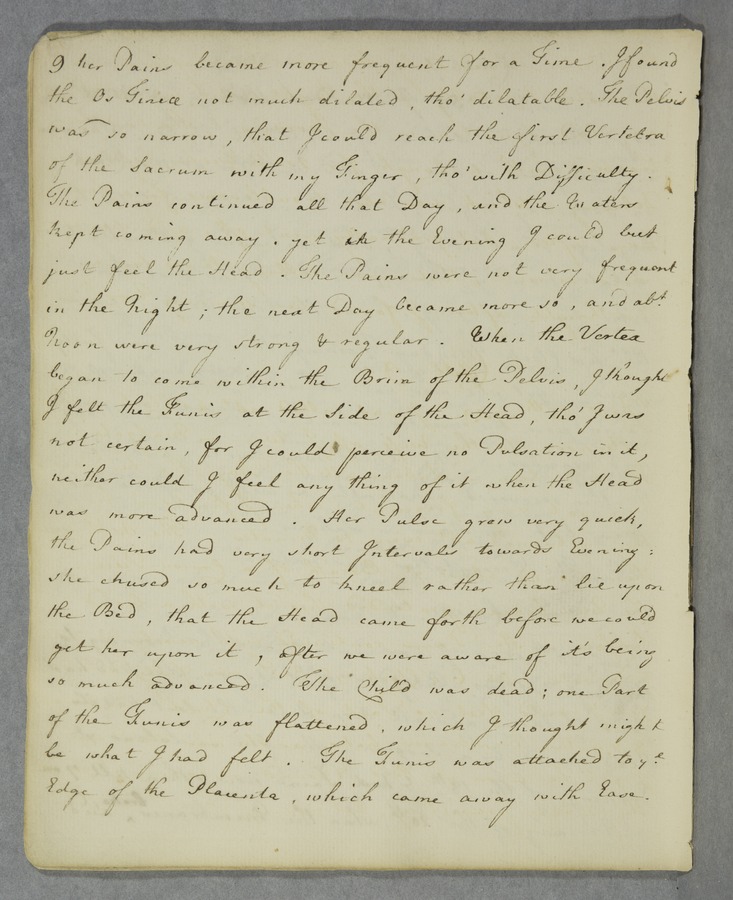 9 her Pains became more frequent for a Time. I found
the Os Tincæ not much dilated, tho' dilatable. The Pelvis
was so narrow, that I could reach the first Vertebra
of the Sacrum with my Finger, tho' with Difficulty.
The Pains continued all that Day, and the Waters
kept coming away. yet in the Evening I could but
just feel the Head. The Pains were not very frequent
in the Night; the next Day became more so, and abt.
Noon were very strong & regular. When the Vertex
began to come within the Brim of the Pelvis, I thought
I felt the Funis at the Side of the Head, tho' I was
not certain, for I could perceive no Pulsation in it,
neither could I feel any thing of it when the Head
was more advanced. Her Pulse grew very quick,
the Pains had very short Intervals towards Evening:
she chused so much to kneel rather than lie upon
the Bed, that the Head came forth before we could
get her upon it, after we were aware of it's being
so much advanced. The Child was dead; one Part
of the Funis was flattened, which I thought might
be what I had felt. The Funis was attached to ye.
Edge of the Placenta, which came away with Ease.